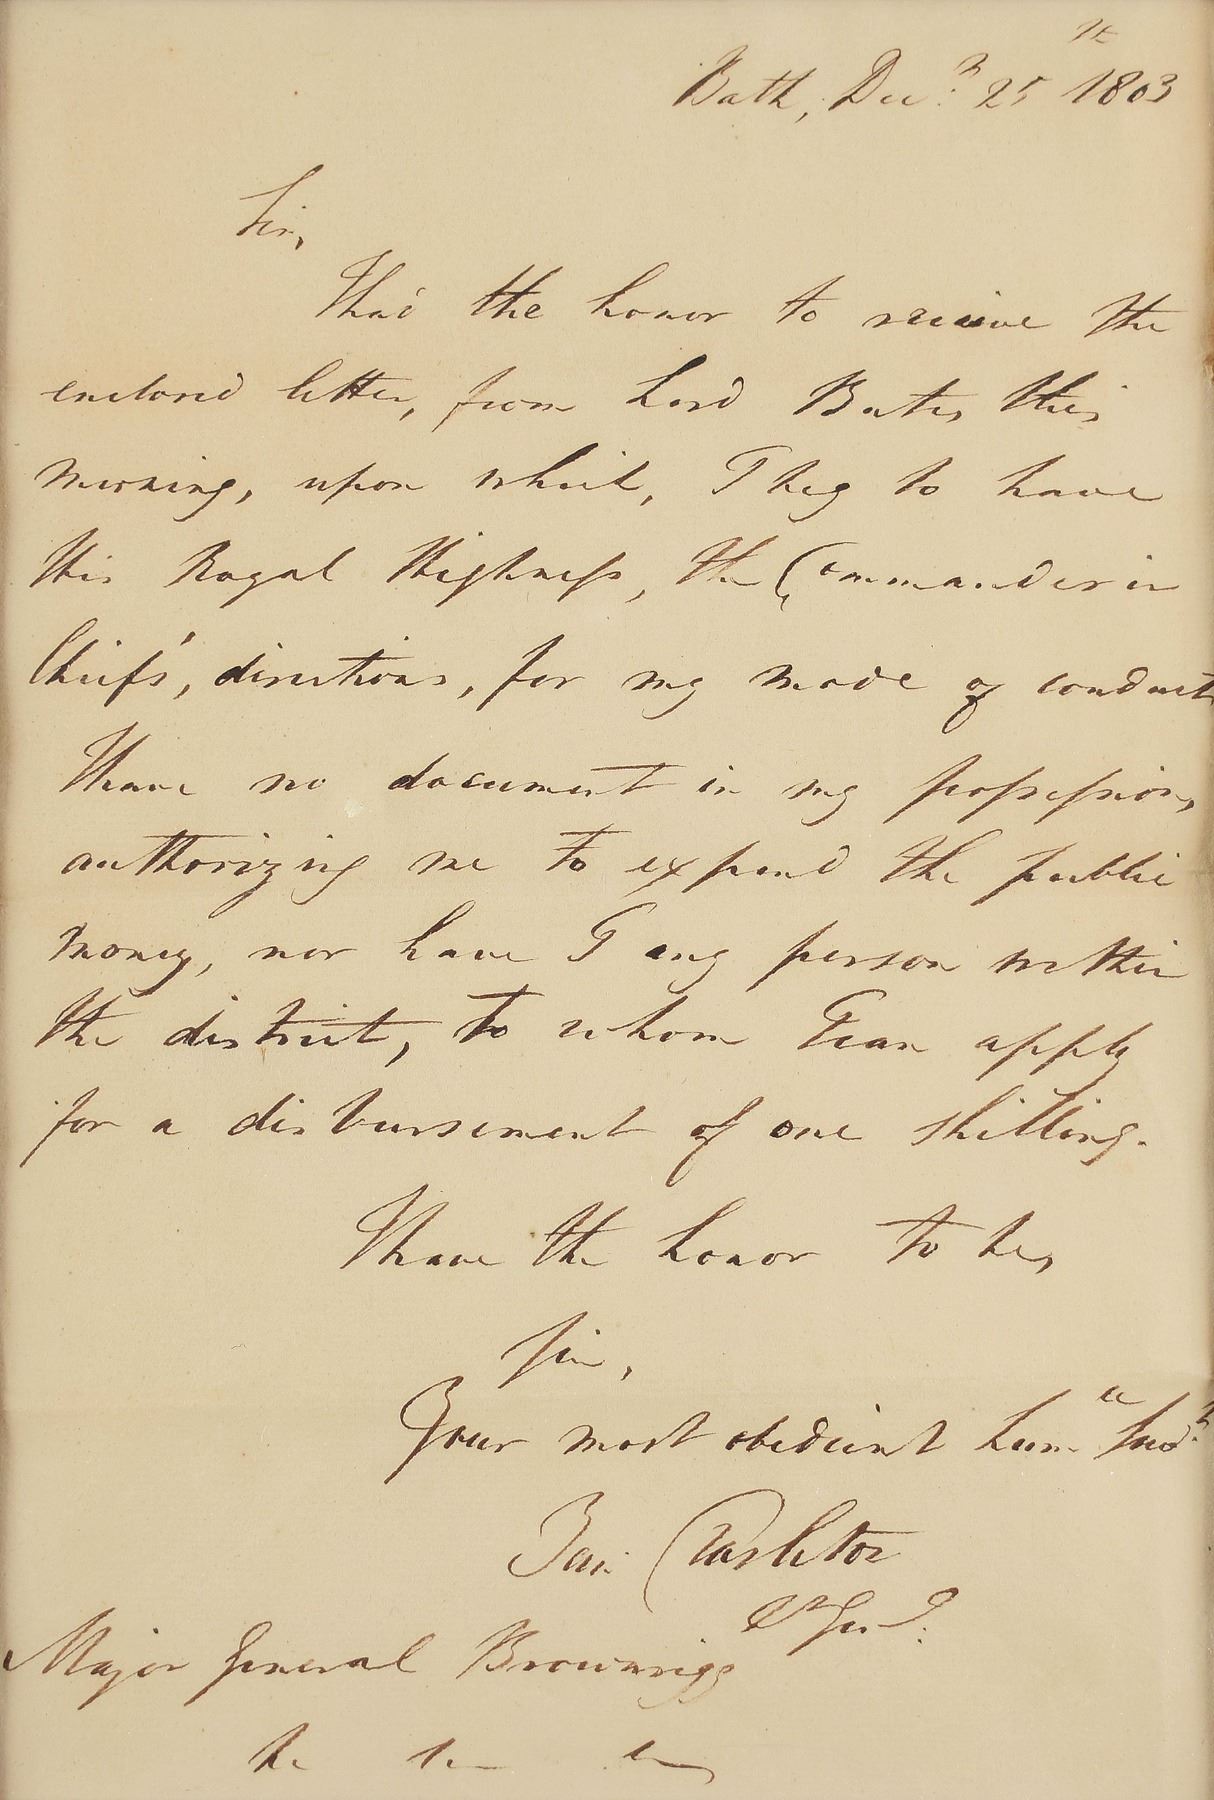 Bath, Decr. 25th 1803
Sir,
I had the honor to receive the
enclosed letter, from Lord Bute, this
morning, upon which, I beg to have
His Royal Highness, the Commander in
Chief's, directions, for my mode of conduct
I have no document in my possession,
authorizing me to expend the public
money, nor have I any person within
the district, to whom I can apply
for a disbursement of one shilling.
I have the honor to be,
Sir,
Your most obedient humle Servt.
Ban. Tarleton
Lt Genl.
Major General Brownrigg